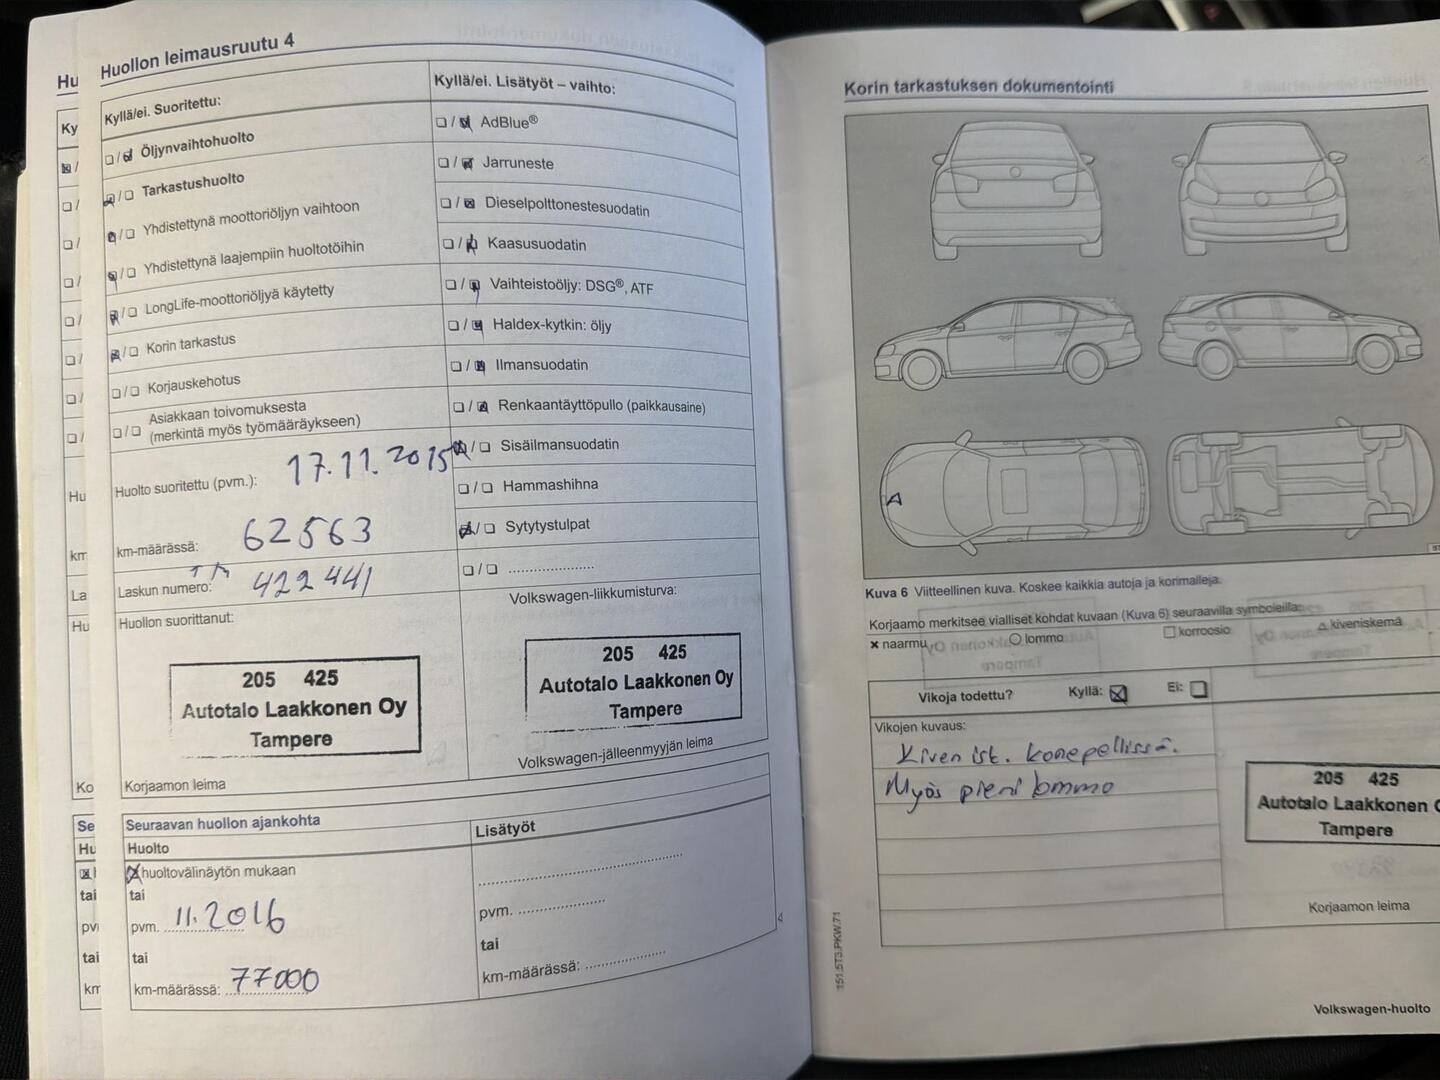 Huollon leimausruutu 4
Kyllä/ei. Suoritettu:
Öljynvaihtohuolto
Tarkastushuolto
Yhdistettynä moottoriöljyn vaihtoon
Yhdistettynä laajempiin huoltotöihin
LongLife-moottoriöljyä käytetty
Korin tarkastus
Korjauskehotus
Asiakkaan toivomuksesta
(merkintä myös työmääräykseen)
Huolto suoritettu (pvm.): 17.11.2015
km-määrässä: 62563
Laskun numero: 422441
Huollon suorittanut:
205 425
Autotalo Laakkonen Oy
Tampere
Korjaamon leima
Kyllä/ei. Lisätyöt – vaihto:
AdBlue®
Jarruneste
Dieselpolttonestesuodatin
Kaasusuodatin
Vaihteistoöljy: DSG®, ATF
Haldex-kytkin: öljy
Ilmansuodatin
Renkaantäyttöpullo (paikkausaine)
Sisäilmansuodatin
Hammashihna
Sytytystulpat
Volkswagen-liikkumisturva:
205 425
Autotalo Laakkonen Oy
Tampere
Volkswagen-jälleenmyyjän leima
Seuraavan huollon ajankohta
Huolto
huoltovälinäytön mukaan
tai
pvm. 11.2016
tai
km-määrässä: 77000
Lisätyöt
pvm.
tai
km-määrässä:
4
Hu
Ky
Hu
km
La
Hu
Ko
Se
Hu
tai
pvi
tai
km
Korin tarkastuksen dokumentointi
Kuva 6 Viitteellinen kuva. Koskee kaikkia autoja ja korimalleja.
Korjaamo merkitsee vialliset kohdat kuvaan (Kuva 6) seuraavilla symboleilla:
naarmu lommo korroosio kiveniskemä
Vikoja todettu? Kyllä: Ei:
Vikojen kuvaus:
Kiven isk. konepellissä.
Myös pieni lommo
205 425
Autotalo Laakkonen O
Tampere
Korjaamon leima
151.5T3.PKW.71
Volkswagen-huolto